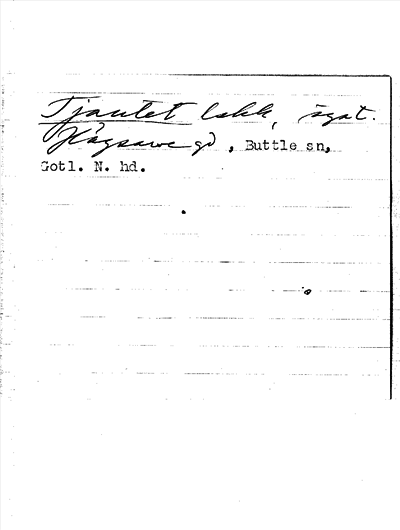 Tjautet lokk, ägat.
Hägsarve gd, Buttle sn,
Gotl. N. hd.